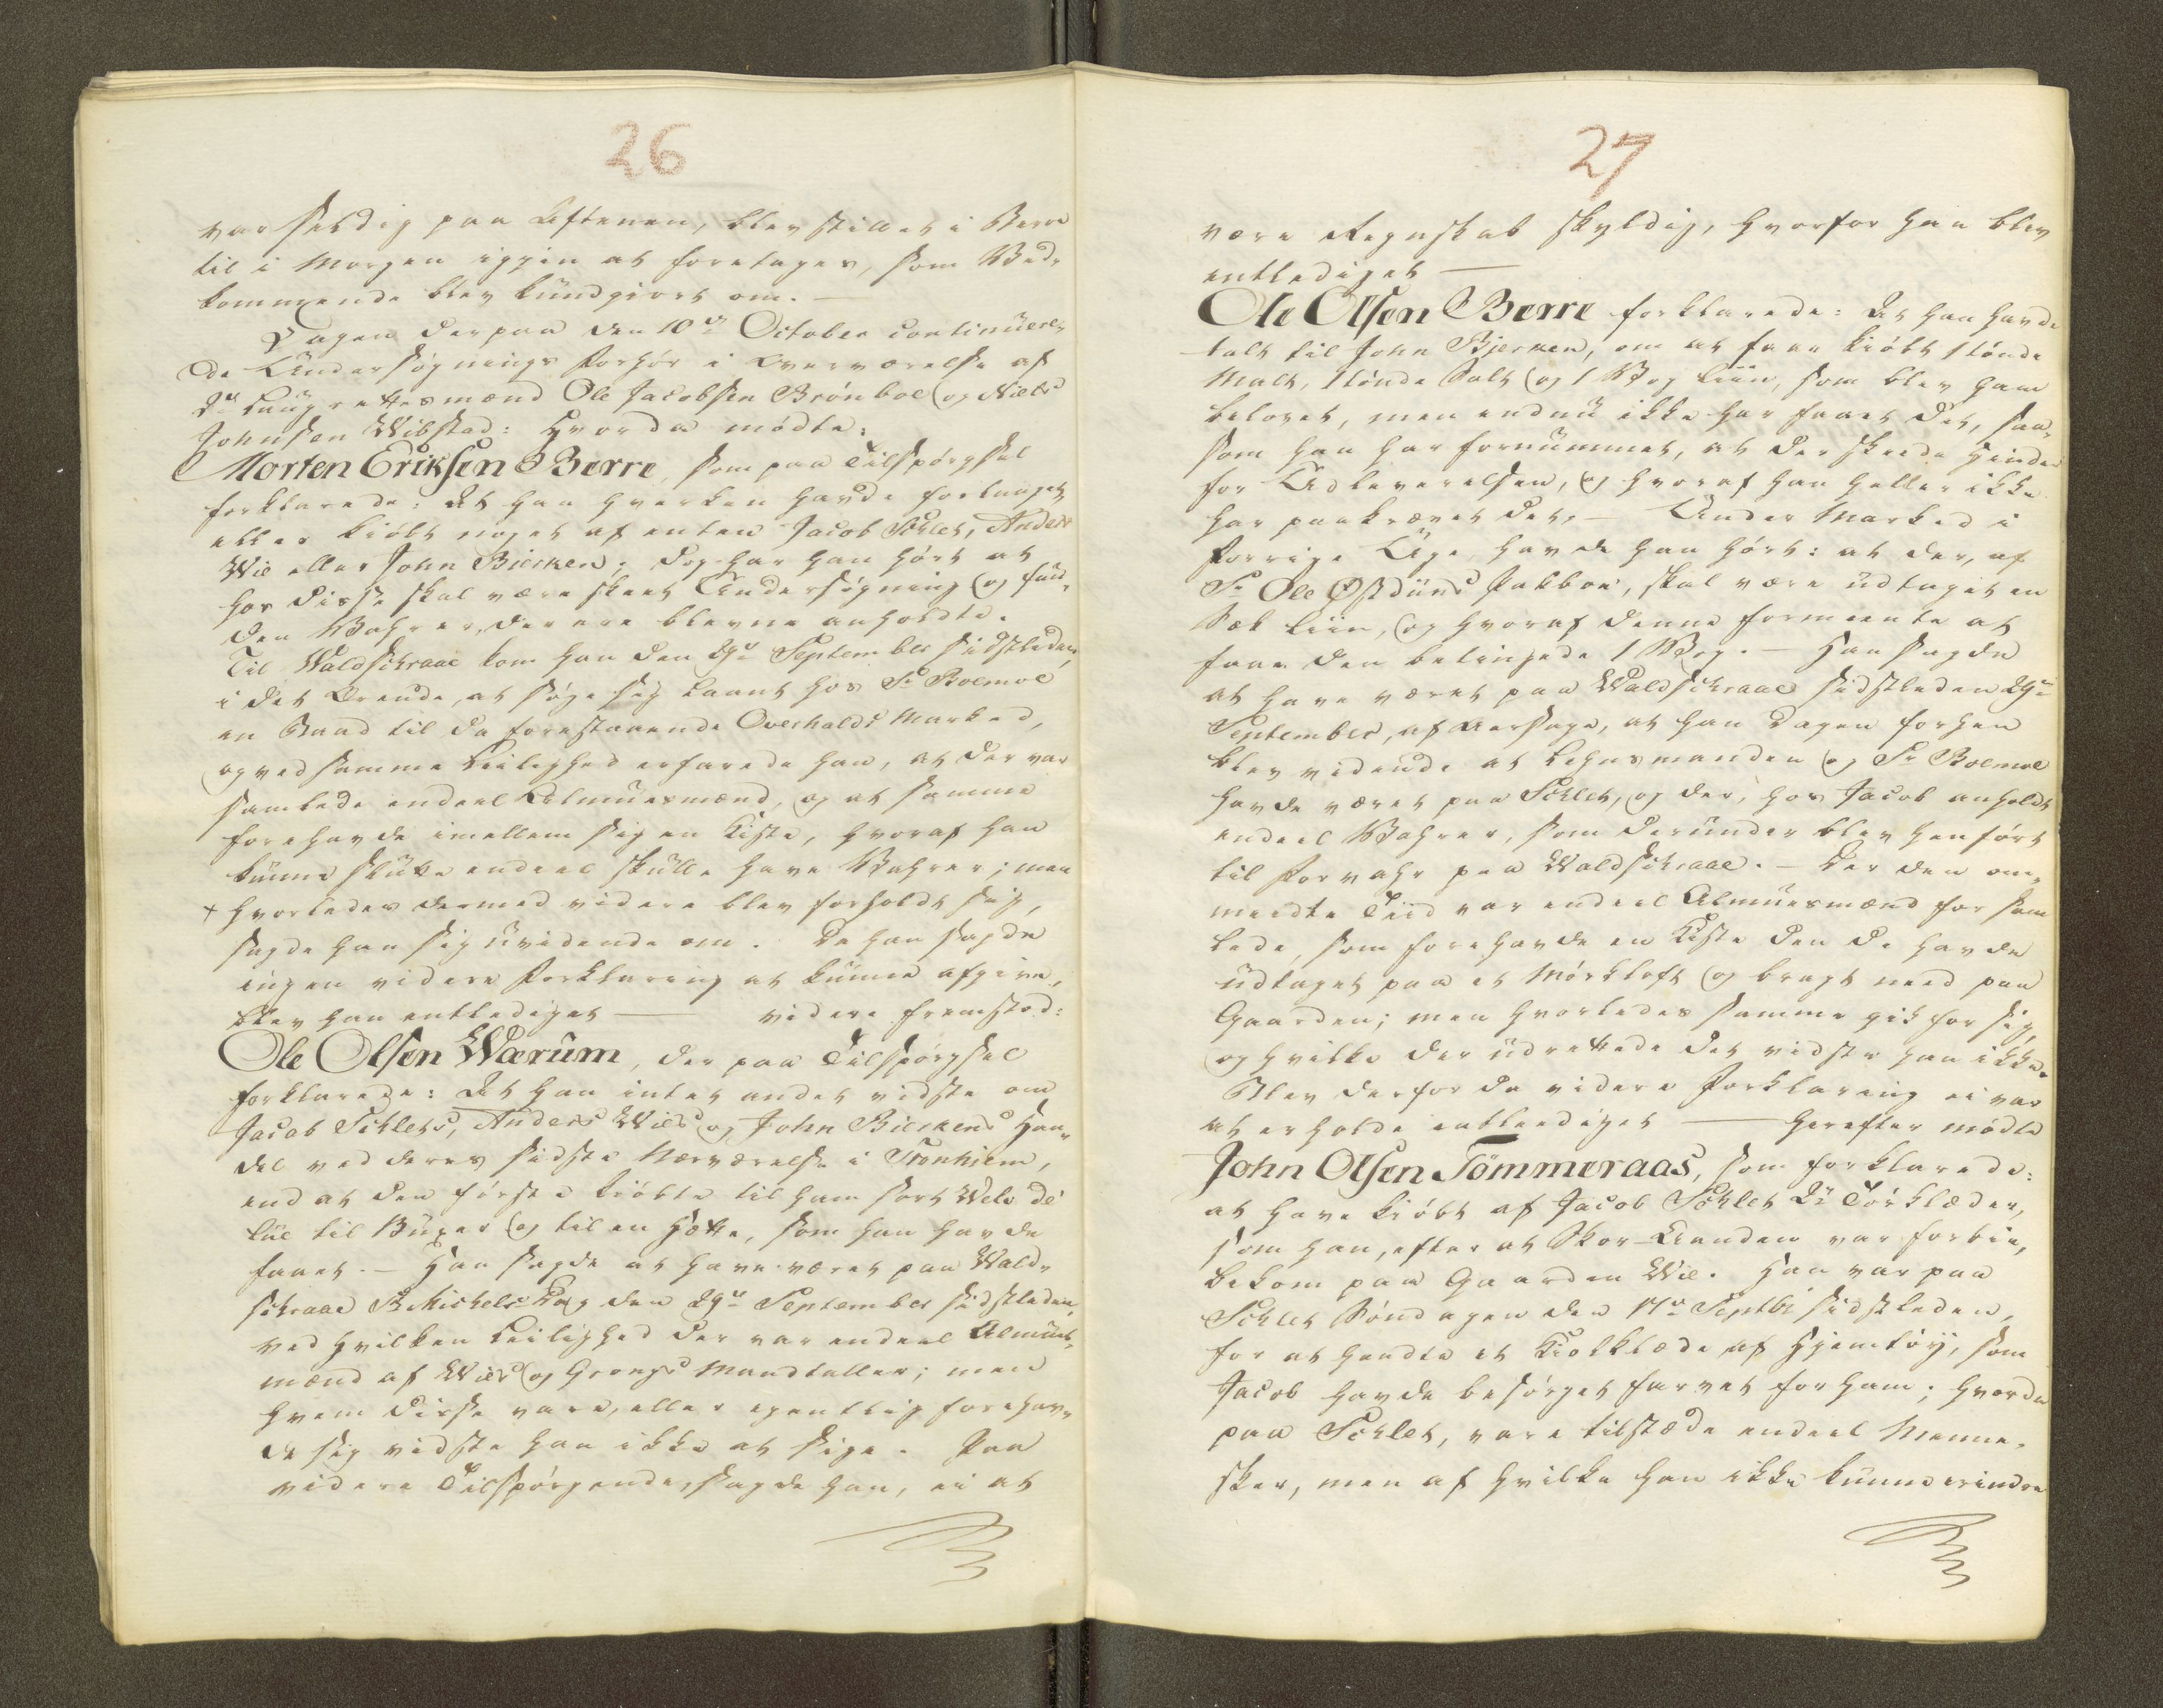 26
var sildig paa Aftenen, blev stillet i Bero
til i Morgen igien at foretages, som Ved-
kommende blev kundgiort om. —
Dagen derpaa den 10de October continuere-
de Undersøgnings Forhør i Overværelse af
2de Laugrettesmænd Ole Jacobsen Brønboe og Niels
Johnsen Wibstad: Hvorda mødte:
Morten Eriksen Berre, som paa Tilspørgsel
forklarede: At han hverken havde forlanget
eller kiøbt noget af enten Jacob Schlet, Anders
Wie eller John Bierken; dog har han hørt at
hos disse skal være skeet Undersøgning og fun-
den Wahrer, der ere blevne anholdte.
Til Waldschraae kom han den 29de September sidstleden,
i det Ærende, at søge sig laant hos Sr Boemoe
en Baad til da forestaaende Overhalds Marked,
og ved samme Leilighed erfarede han, at der var
samlede endeel Almuesmænd, og at samme
forehavde imellem sig en Kiste, hvoraf han
kunne slutte endeel skulle have Wahrer; men
+ hvorledes dermed videre blev forholdt sig,
sagde han sig uvidende om. Da han sagde
ingen videre Forklaring at kunne afgive,
blev han entlediget — videre fremstod:
Ole Olsen Wærum, der paa Tilspørgsel
forklarede: At han intet andet vidste om
Jacob Schlets, Anders Wies og John Bierkens Han-
del ved deres sidste Nærværelse i Tronhiem,
end at den første kiøbte til ham sort Welo de
til Buxer og til en Hætte, som han havde
faaet. — Han sagde at have været paa Wald-
schraae St Michels Dag den 29de September sidstleden,
ved hvilken Leilighed der var endeel Almues-
mænd af Wies og Grongs Mandtaller; men
hvem disse vare, eller egentlig forehav-
de sig vidste han ikke at sige. Paa
videre Tilspørgende, sagde han, ei at
27
være Regnskab skyldig, hvorfor han blev
entlediget —
Ole Olsen Berre forklarede: At han havde
talt til John Bjerken, om at faae kiøbt 1 tønde
Malt, 1 tønde Salt og 1 Wog Liin, som blev ham
belovet, men endnu ikke har faaet det, saa-
som han har fornummet, at der skeede Hinder
for Udleverelsen, og hvoraf han heller ikke
har paakrævet det. — Under Marked i
forrige Uge havde han hørt: at der, af
Sr Ole Østduns Pakboe, skal være udtaget en
Sæk Liin, og hvoraf denne formeente at
faae den betingede 1 Wog. — Han sagde
at have været paa Waldschraae sidstleden 29de
September, af Aarsage, at han Dagen forhen
blev vidende at Lehnsmanden og Sr Boemoe
havde været paa Schlet, og der, hos Jacob anholdt
endeel Wahrer, som derunder blev henført
til Forvahr paa Waldschraae. — Der den om-
meldte Tiid var endeel Almuesmænd for sam
lede, som forehavde en Kiste den de havde
udtaget paa et Mørkloft og bragt need paa
Gaarden; men hvorledes samme gik for sig,
og hvilke der udrettede det vidste han ikke.
Blev derfor da videre Forklaring ei var
at erholde entleediget — Herefter mødte
John Olsen Tömmeraas, som forklarede:
at have kiøbt af Jacob Schlet 2de Tørklæder,
som han, efter at Skor-Aanden var forbie,
bekom paa Gaarden Wie. Han var paa
Schlet Søndagen den 17de Septbr sidstleden,
for at hendte et Kiolklæde af Hjemtøy, som
Jacob havde besørget farvet for ham; hvorda
paa Schlet, vare tilstæde endeel Menne-
sker, men af hvilke han ikke kunne erindre